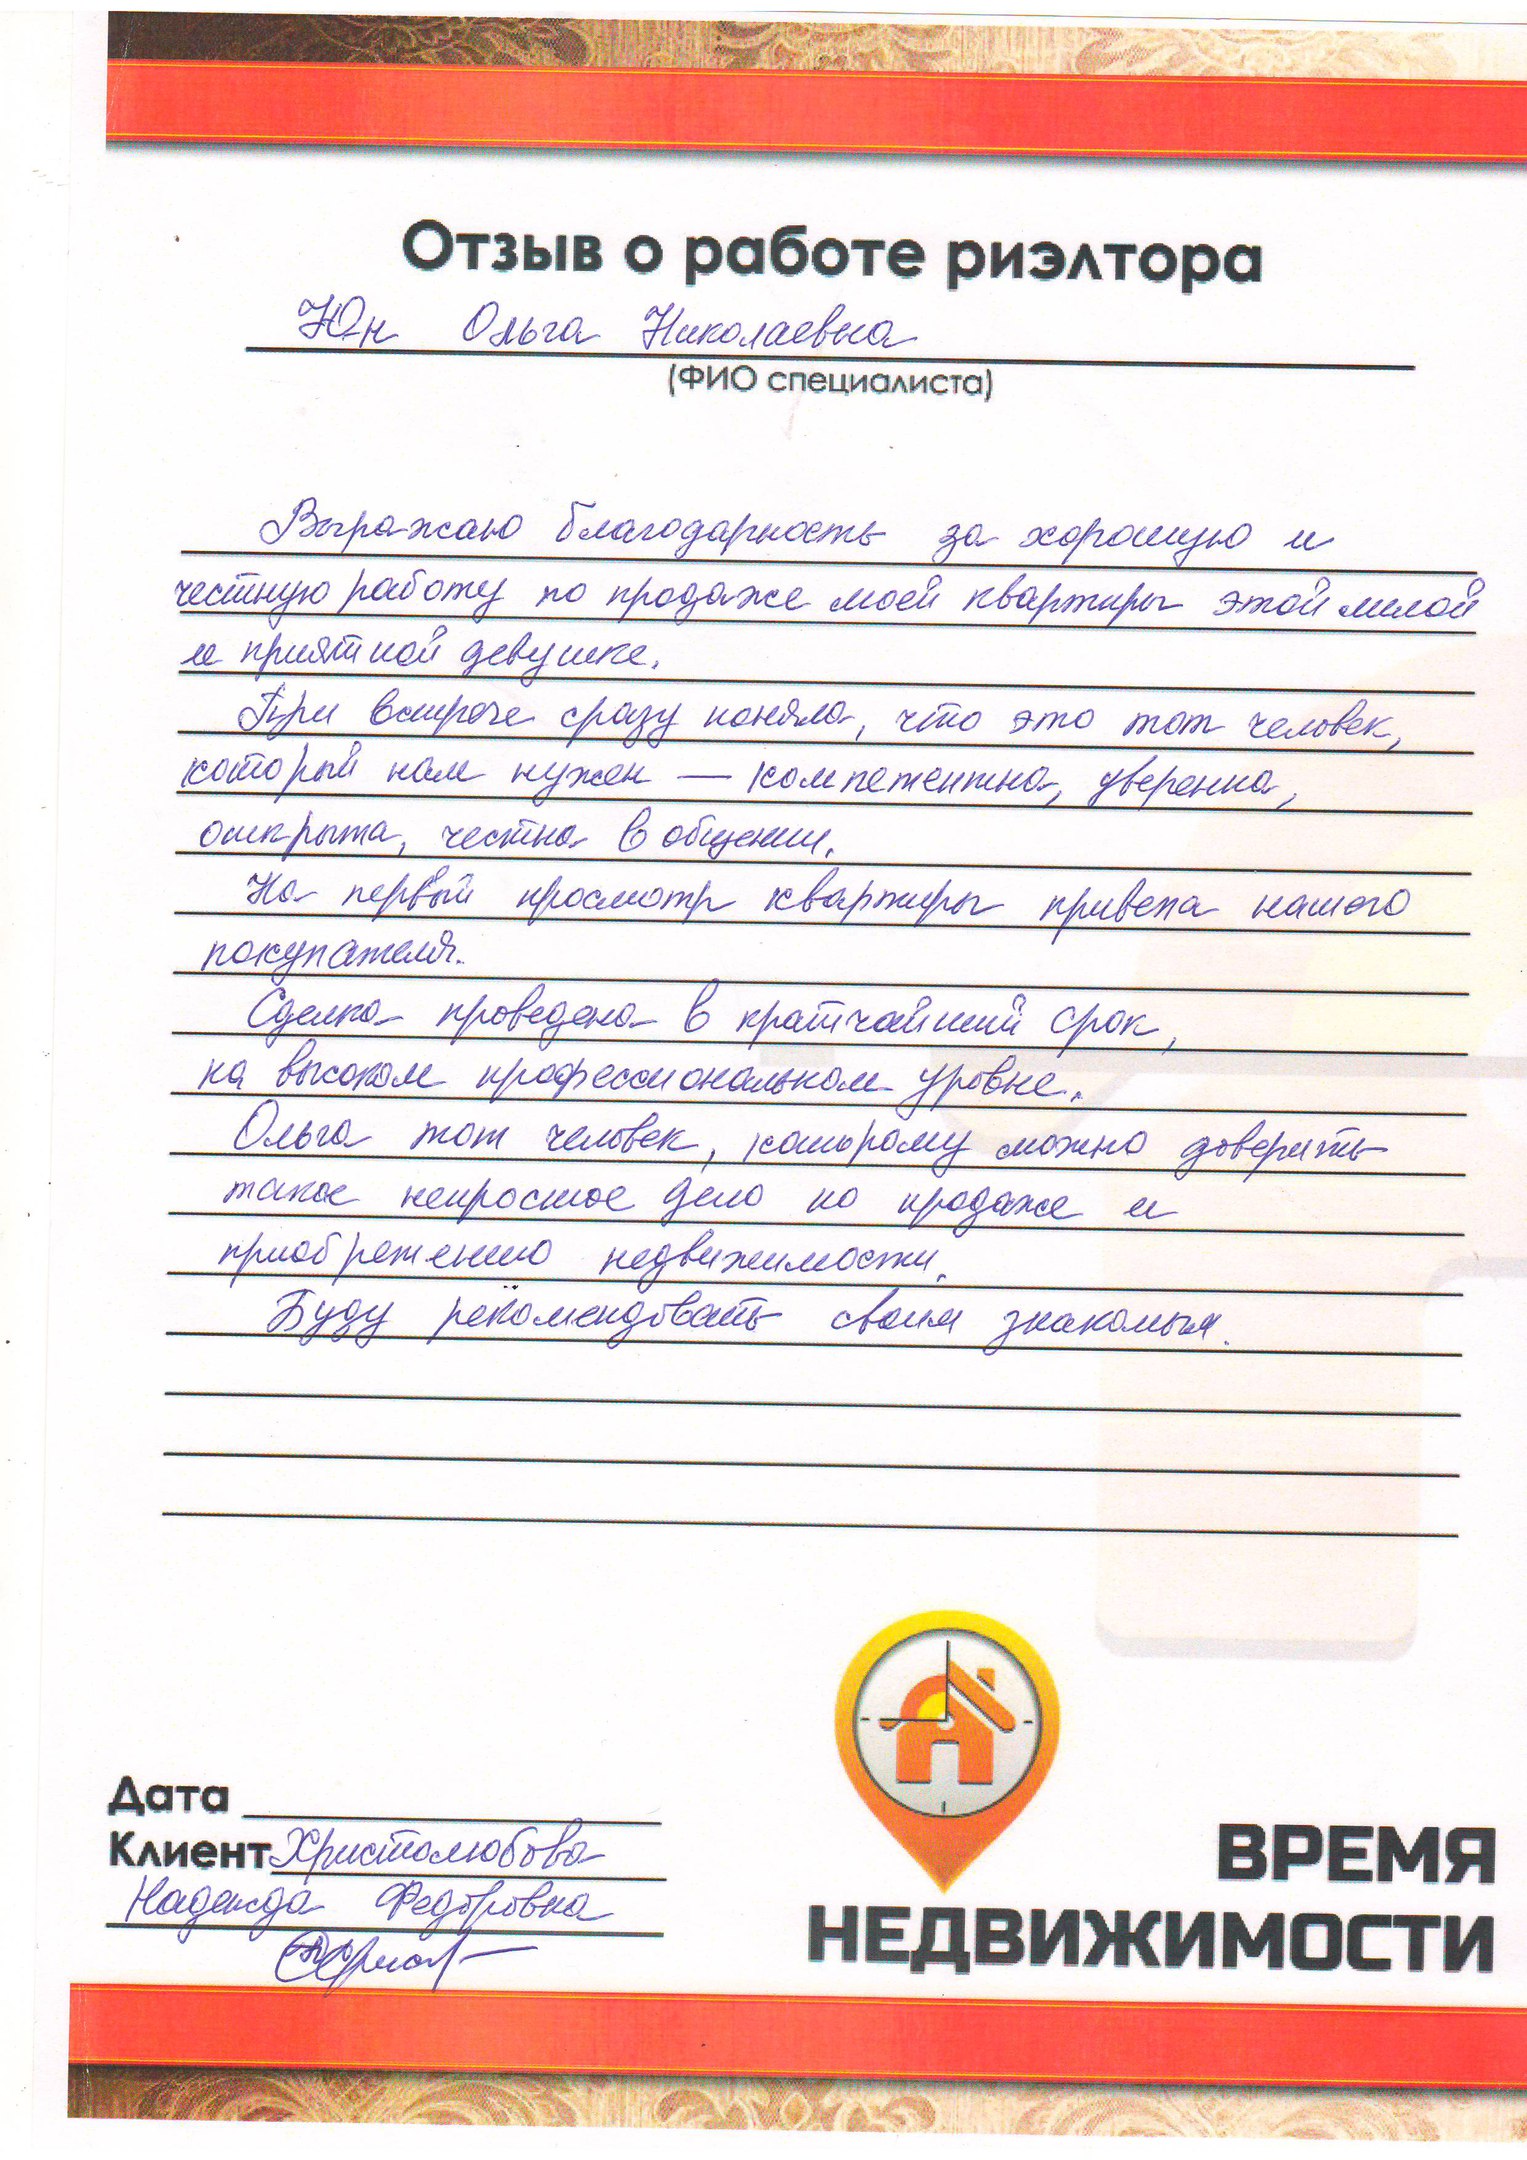 Отзыв о работе риэлтора
Юн Ольга Николаевна
(ФИО специалиста)
Выражаю благодарность за хорошую и
честную работу по продаже моей квартиры этой милой
и приятной девушке.
При встрече сразу поняла, что это тот человек,
который нам нужен — компетентна, уверенна,
открыта, честна в общении.
На первый просмотр квартиры привела нашего
покупателя.
Сделка проведена в кратчайший срок,
на высоком профессиональном уровне.
Ольга тот человек, которому можно доверить
такое непростое дело по продаже и
приобретению недвижимости.
Буду рекомендовать своим знакомым.
Дата
Клиент Христолюбова
Надежда Федоровна
ВРЕМЯ
НЕДВИЖИМОСТИ